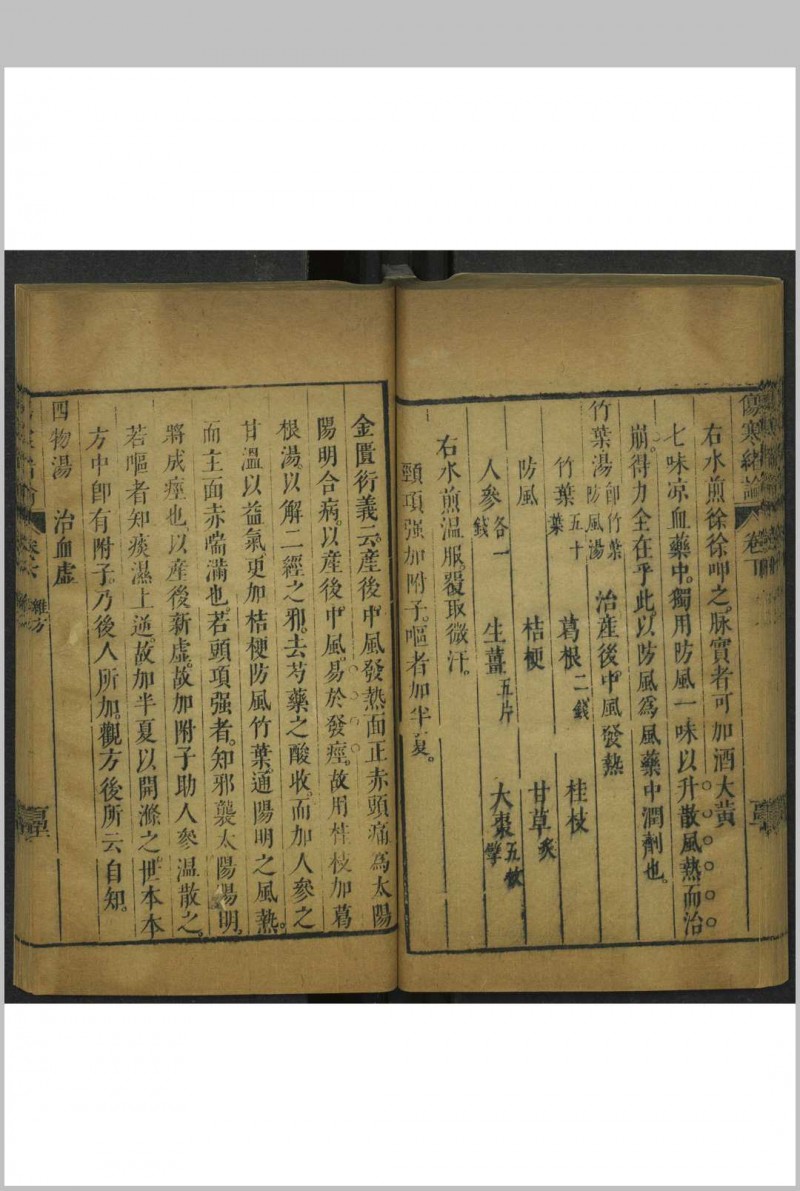 傷寒緒論 卷下
右水煎徐徐呷之。脉實者可加酒大黃
七味凉血藥中。獨用防風一味以升散風熱而治
崩。得力全在乎此以防風爲風藥中潤劑也。
竹葉湯 即竹葉防風湯 治產後中風發熱
竹葉 五十葉 葛根 二錢 桂枝
防風 桔梗 甘草 炙
人參 各一錢 生薑 五片 大棗 五枚擘
右水煎溫服。覆取微汗。
頸項强加附子。嘔者加半夏。
金匱衍義云。產後中風發熱面正赤頭痛爲太陽
陽明合病。以產後中風。易於發痙。故用桂枝加葛
根湯。以解二經之邪。去芍藥之酸收。而加人參之
甘溫以益氣更加桔梗防風竹葉。通陽明之風熱。
而主面赤喘滿也。若頭項强者。知邪襲太陽陽明。
將成痙也。以產後新虛。故加附子助人參溫散之。
若嘔者知痰濕上逆。故加半夏以開滌之。世本本
方中即有附子。乃後人所加。觀方後所云自知。
四物湯 治血虛
雜方